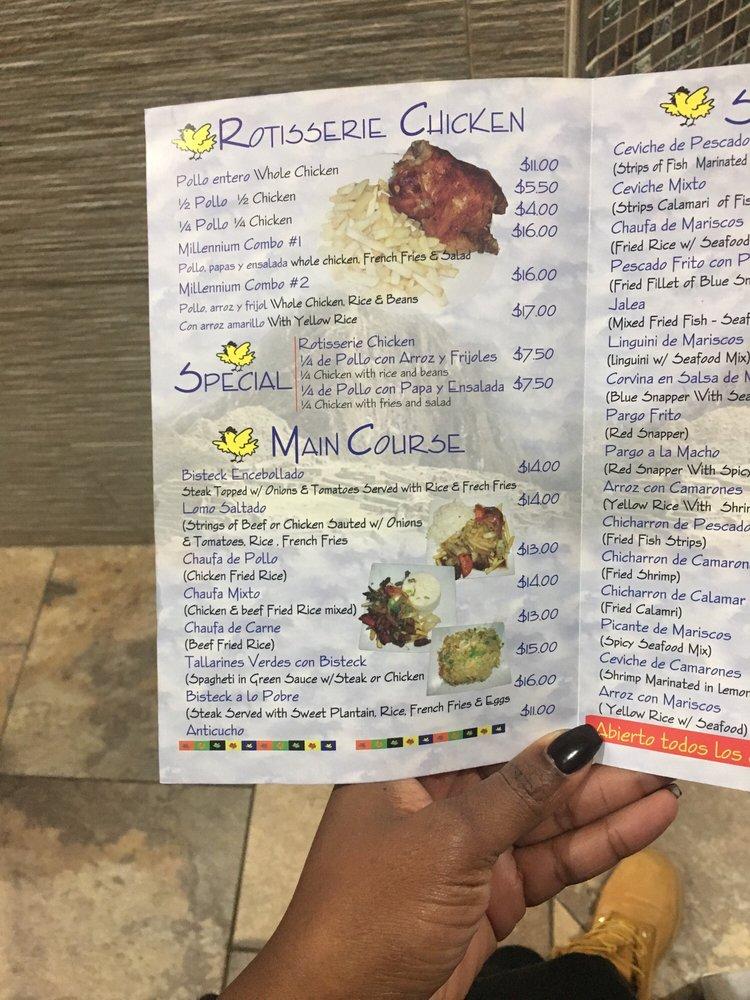 ROTISSERIE CHICKEN
Pollo entero Whole Chicken $11.00
½ Pollo ½ Chicken $5.50
¼ Pollo ¼ Chicken $4.00
Millennium Combo #1 $16.00
Pollo, papas y ensalada whole chicken, French Fries & Salad
Millennium Combo #2 $16.00
Pollo, arroz y frijol Whole Chicken, Rice & Beans
Con arroz amarillo With Yellow Rice $17.00
SPECIAL
Rotisserie Chicken
¼ de Pollo con Arroz y Frijoles $7.50
¼ Chicken with rice and beans
¼ de Pollo con Papa y Ensalada $7.50
¼ Chicken with fries and salad
MAIN COURSE
Bisteck Encebollado $14.00
Steak Topped w/ Onions & Tomatoes Served with Rice & Frech Fries
Lomo Saltado $14.00
(Strings of Beef or Chicken Sauted w/ Onions
& Tomatoes, Rice , French Fries
Chaufa de Pollo $13.00
(Chicken Fried Rice)
Chaufa Mixto $14.00
(Chicken & beef Fried Rice mixed)
Chaufa de Carne $13.00
(Beef Fried Rice)
Tallarines Verdes con Bisteck $15.00
(Spagheti in Green Sauce w/Steak or Chicken
Bisteck a lo Pobre $16.00
(Steak Served with Sweet Plantain, Rice, French Fries & Eggs
Anticucho $11.00
S
Ceviche de Pescado
(Strips of Fish Marinated
Ceviche Mixto
(Strips Calamari of
Chaufa de Mariscos
(Fried Rice w/ Seafood
Pescado Frito con
(Fried Fillet of Blue
Jalea
(Mixed Fried Fish -
Linguini de Mariscos
(linguini w/ Seafood Mix)
Corvina en Salsa de
(Blue Snapper With
Pargo Frito
(Red Snapper)
Pargo a La Macho
(Red Snapper With
Arroz con Camarones
(Yellow Rice With
Chicharron de Pescado
(Fried Fish Strips)
Chicharron de
(Fried Shrimp)
Chicharron de Calamar
(Fried Calamri)
Picante de Mariscos
(Spicy Seafood Mix)
Ceviche de Camarones
(Shrimp Marinated in Lemon
Arroz con Mariscos
( Yellow Rice w/ Seafood)
Abierto todos los